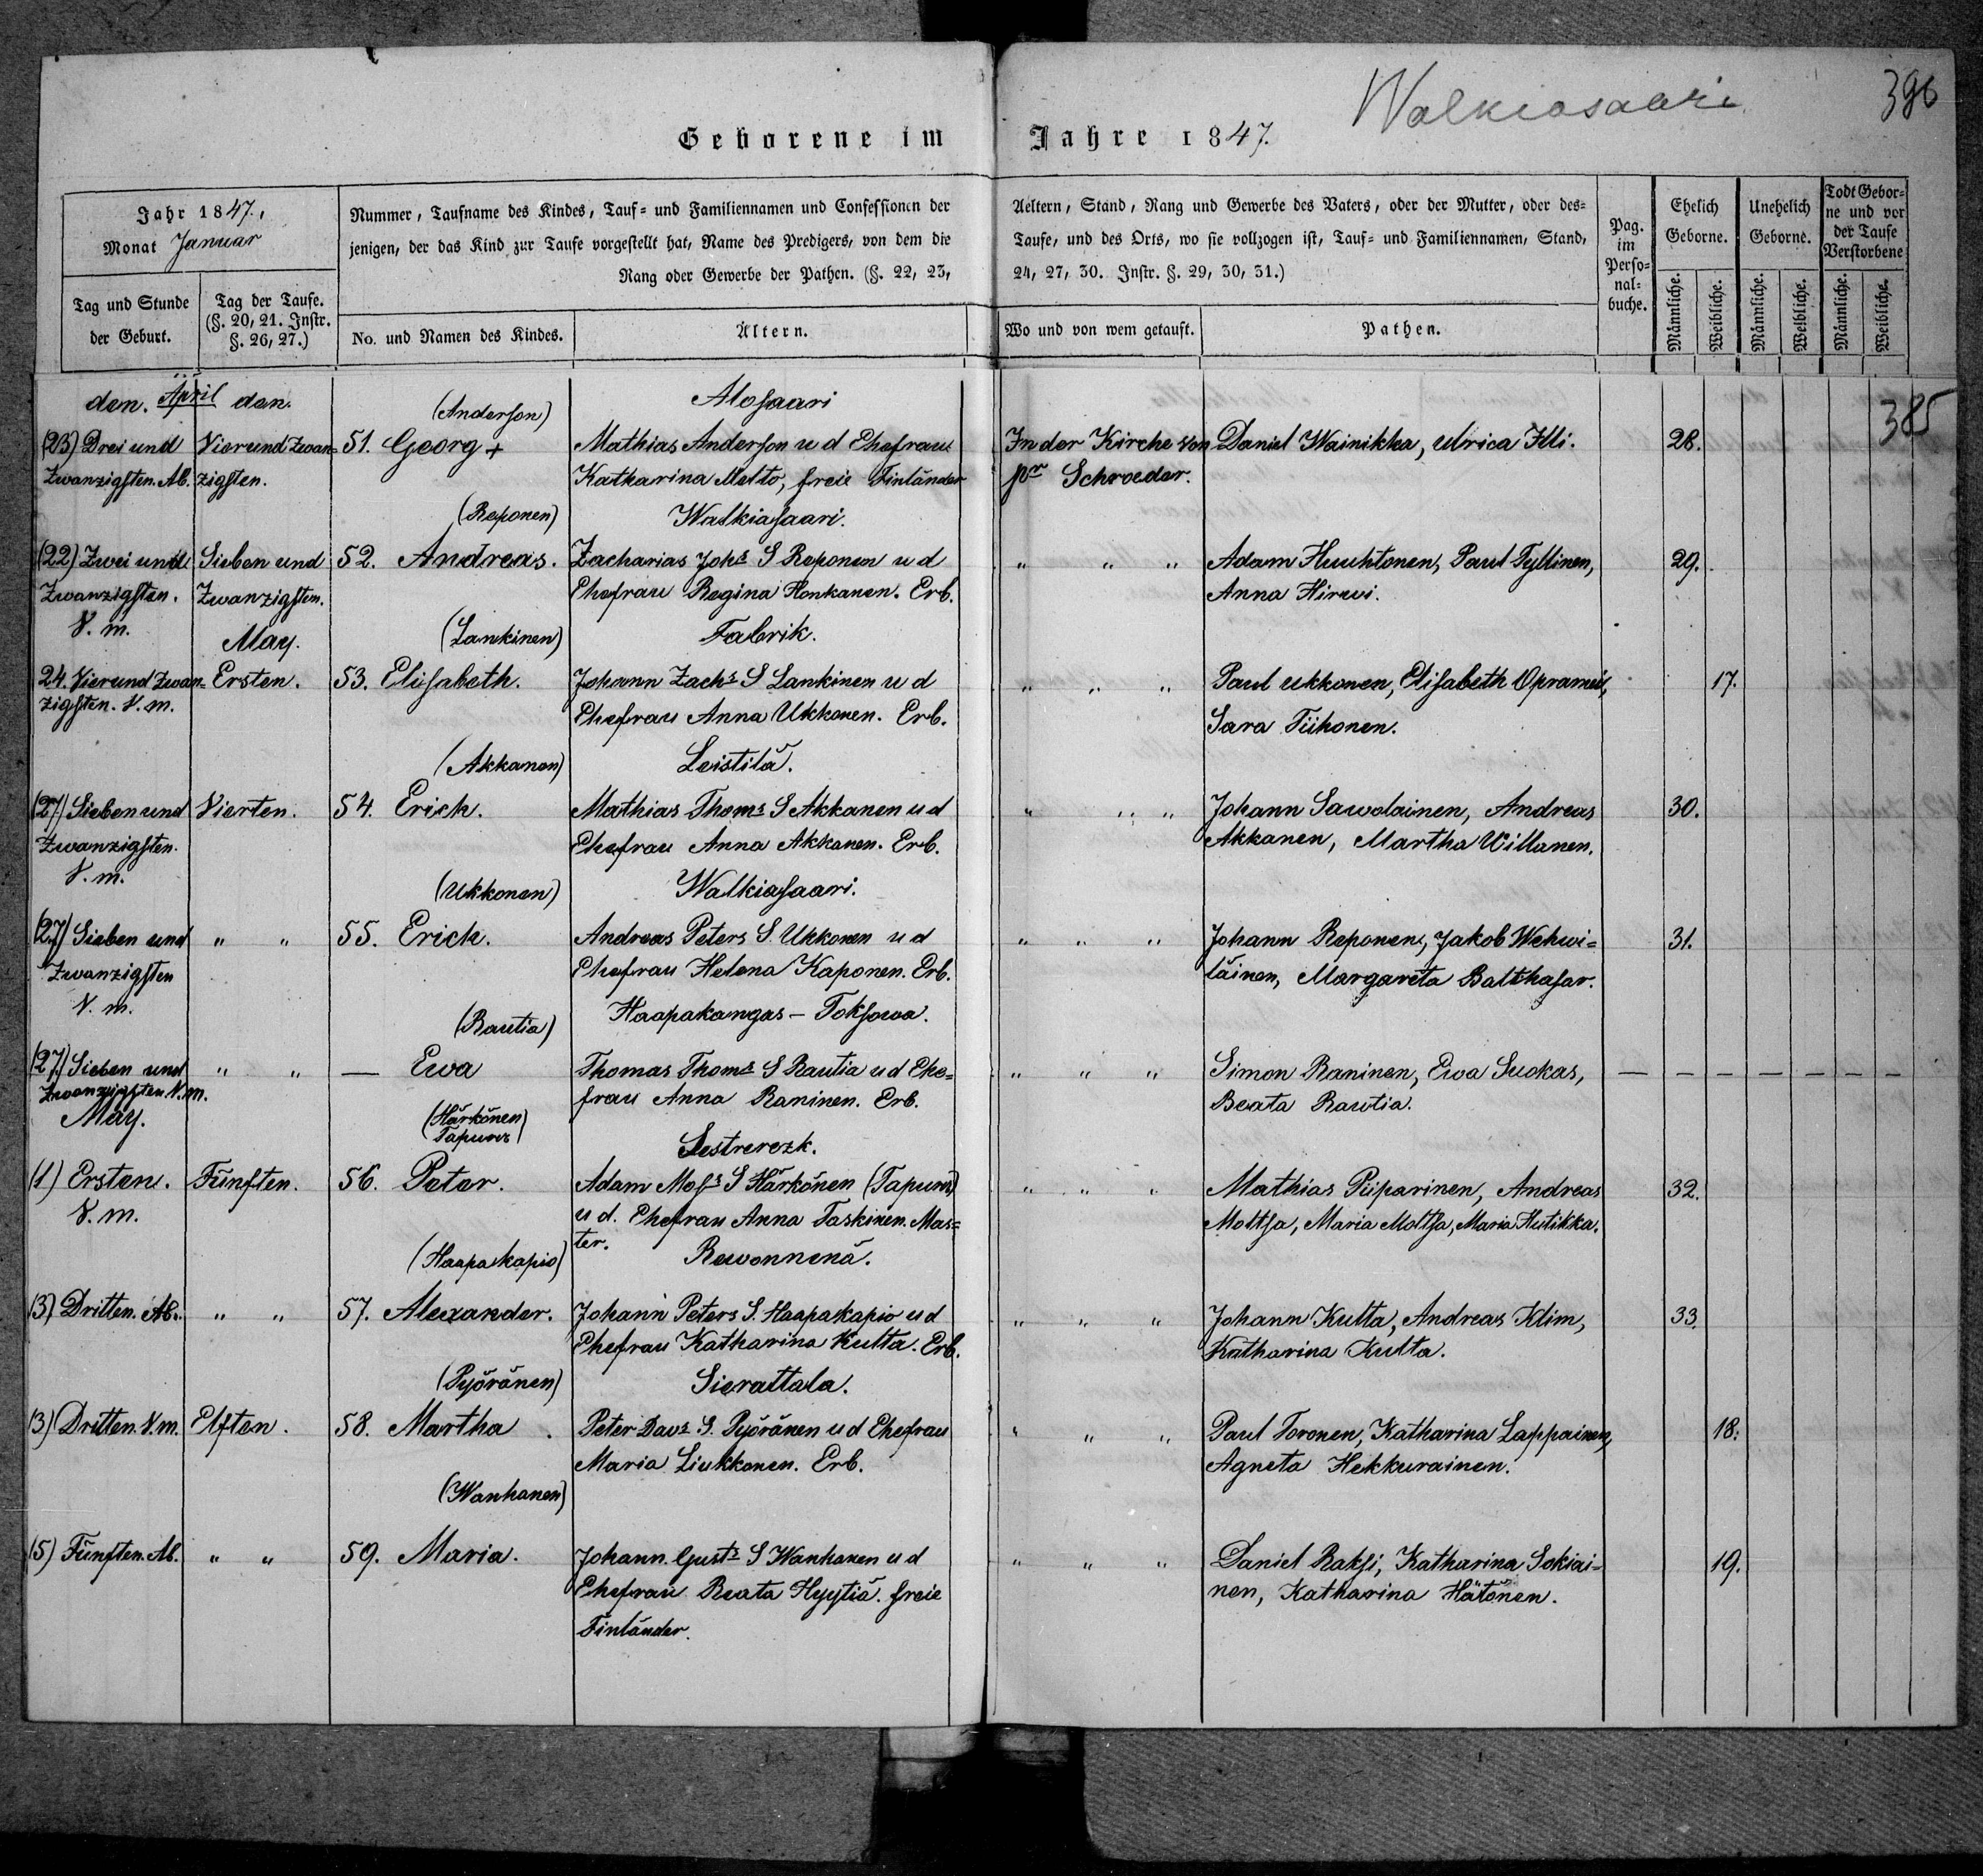 Walkiasaari
396
Geborene im Jahre 1847.
Jahr 1847.,
Monat Januar
Tag und Stunde
der Geburt.
Tag der Taufe.
(§. 20, 21. Instr.
§. 26, 27.)
Nummer, Taufname des Kindes, Tauf- und Familiennamen und Confessionen der
jenigen, der das Kind zur Taufe vorgestellt hat, Name des Predigers, von dem die
Rang oder Gewerbe der Pathen. (§. 22, 23,
No. und Namen des Kindes.
Ältern.
Aeltern, Stand, Rang und Gewerbe des Vaters, oder der Mutter, oder des-
Taufe, und des Orts, wo sie vollzogen ist, Tauf- und Familiennamen, Stand,
24, 27, 30. Instr. §. 29, 30, 31.)
Wo und von wem getauft.
Pathen.
Pag.
im
Perso-
nal-
buche.
Ehelich
Geborne.
Unehelich
Geborne.
Todt Gebor-
ne und vor
der Taufe
Verstorbene
Männliche.
Weibliche.
Männliche.
Weibliche.
Männliche.
Weibliche.
385
den. April den.
(Anderson) Alosaari
(23) Drei und Vier und Zwan- 51. Georg + Mathias Anderson u d Ehefrau In der Kirche von Daniel Wainikka, Ulrica Illi. 28.
Zwanzigsten. Ab. zigsten. Katharina Metto, freie Finländer pr Schroeder.
(Reponen) Walkiasaari.
(22) Zwei und Sieben und 52. Andreas. Zacharias Johs S Reponen u d " " " Adam Huuhtonen, Paul Tyllinen, 29.
Zwanzigsten. Zwanzigsten. Ehefrau Regina Honkanen. Erb. Anna Hirwi.
V. m. May. (Lankinen) Fabrik.
24. Vier und Zwan- Ersten. 53. Elisabeth. Johann Zachs S Lankinen u d " " " Paul Ukkonen, Elisabeth 17.
zigsten. V. m. Ehefrau Anna Ukkonen. Erb. Sara Tiihonen.
(Akkanen) Leistilä.
(27) Sieben und Vierten. 54. Erich. Mathias Thoms S Akkanen u d " " " Johann Sawolainen, Andreas 30.
Zwanzigsten. Ehefrau Anna Akkanen. Erb. Akkanen, Martha Willanen.
V. m. (Ukkonen) Walkiasaari.
(27) Sieben und " " 55. Erich. Andreas Peters S. Ukkonen u d " " " Johann Reponen, Jakob Wehwi- 31.
Zwanzigsten Ehefrau Helena Kaponen. Erb. läinen, Margareta Balthasar.
V. m. (Rautia) Haapakangas - Toksowa.
(27) Sieben und " " — Ewa Thomas Thoms S Rautia u d Ehe- " " " Simon Raninen, Ewa Suokas, — — — — — — —
Zwanzigsten N. m. frau Anna Raninen. Erb. Beata Rautia.
May. (Härkönen
Tapura) Sestrerezk.
(1) Ersten. Fünften. 56. Peter. Adam Moss S Härkönen (Tapura) " " " Mathias Piiparinen, Andreas 32.
V. m. u d. Ehefrau Anna Taskinen. Mas- Mottsa, Maria Mottsa, Maria Hutikka.
ter.
(Haapakapio) Rewonnenä.
(3) Dritten. Ab. " " 57. Alexander. Johann Peters S. Haapakapio u d " " " Johann Kutta, Andreas Klim, 33.
Ehefrau Katharina Kutta. Erb. Katharina Kutta.
(Pyöränen) Sierattala.
(3) Dritten. V. m. Elften. 58. Martha. Peter Davs S. Pyöränen u d Ehefrau " " " Paul Toronen, Katharina Lappainen, 18.
Maria Liukkonen. Erb. Agneta Hekkurainen.
(Wanhanen)
(5) Fünften. Ab. " " 59. Maria. Johann Gusts S Wanhanen u d " " " Daniel Raksi, Katharina Sokiai- 19.
Ehefrau Beata Hyytiä. freie nen, Katharina Hätönen.
Finländer.